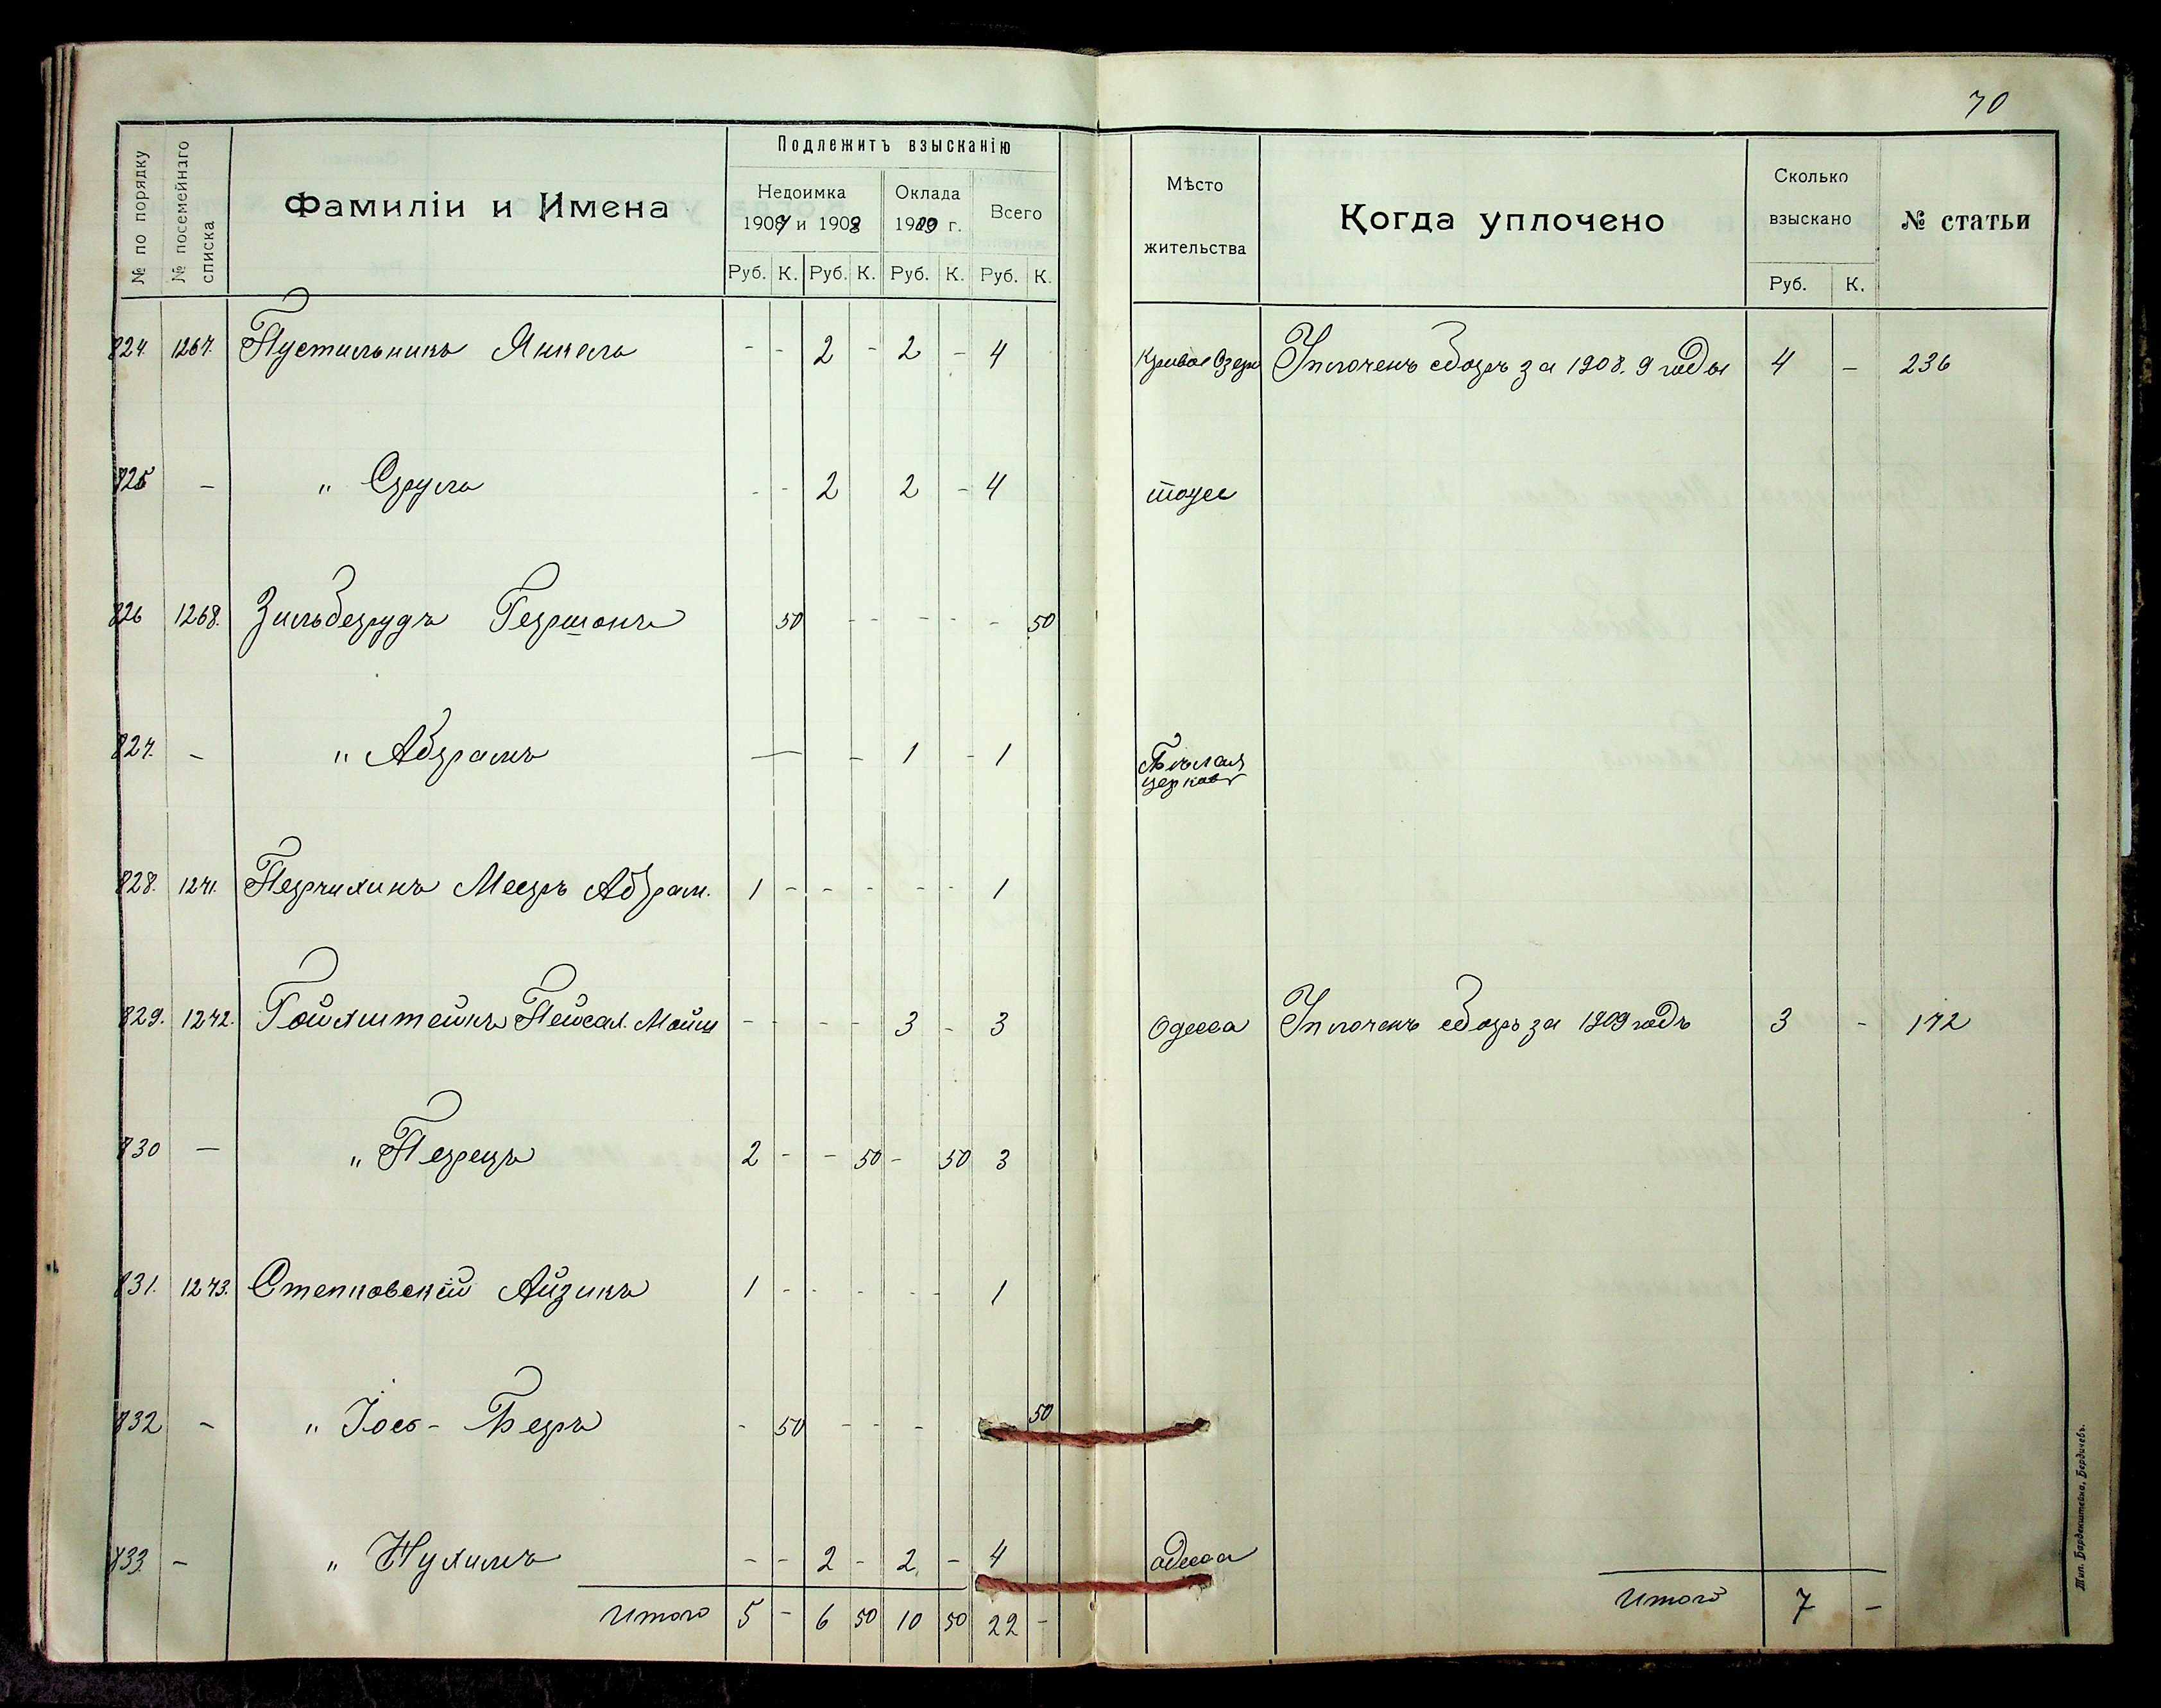 70
№ по порядку
№ посемейнаго списка
Фамиліи и Имена
Подлежитъ взысканію
Недоимка
1907 и 1908
Оклада
1909 г.
Всего
Руб. К. Руб. К. Руб. К. Руб. К.
Мѣсто
жительства
Когда уплочено
Сколько
взыскано
Руб. К.
№ статьи
824. 1267. Пустильникъ Янкель - - 2 - 2 - 4 Кривое Озеро Уплоченъ сборъ за 1908. 9 годы 4 - 236
825 - " Сруль - - 2 2 - 4 тоже
826 1268. Зильберудъ Гершонъ 50 - - - - - 50
827. - " Абрамъ — - 1 - 1 Бѣлая
церковь
828. 1271. Перчихинъ Мееръ Абрам. 1 - - - - - 1
829. 1272. Гойхштейнъ Пейсах. Мойш - - - - 3 - 3 Одесса Уплоченъ сборъ за 1909 годъ 3 - 172
830 - " Перецъ 2 - - 50 - 50 3
831. 1273. Степковскій Айзикъ 1 - - - - - 1
832 - " Іось - Беръ - 50 - - - 50
833. - " Нухимъ - - 2 - 2 - 4 одесса
Итого 5 - 6 50 10 50 22 -
Итого 7 -
Тип. Барденштейна, Бердичевъ.